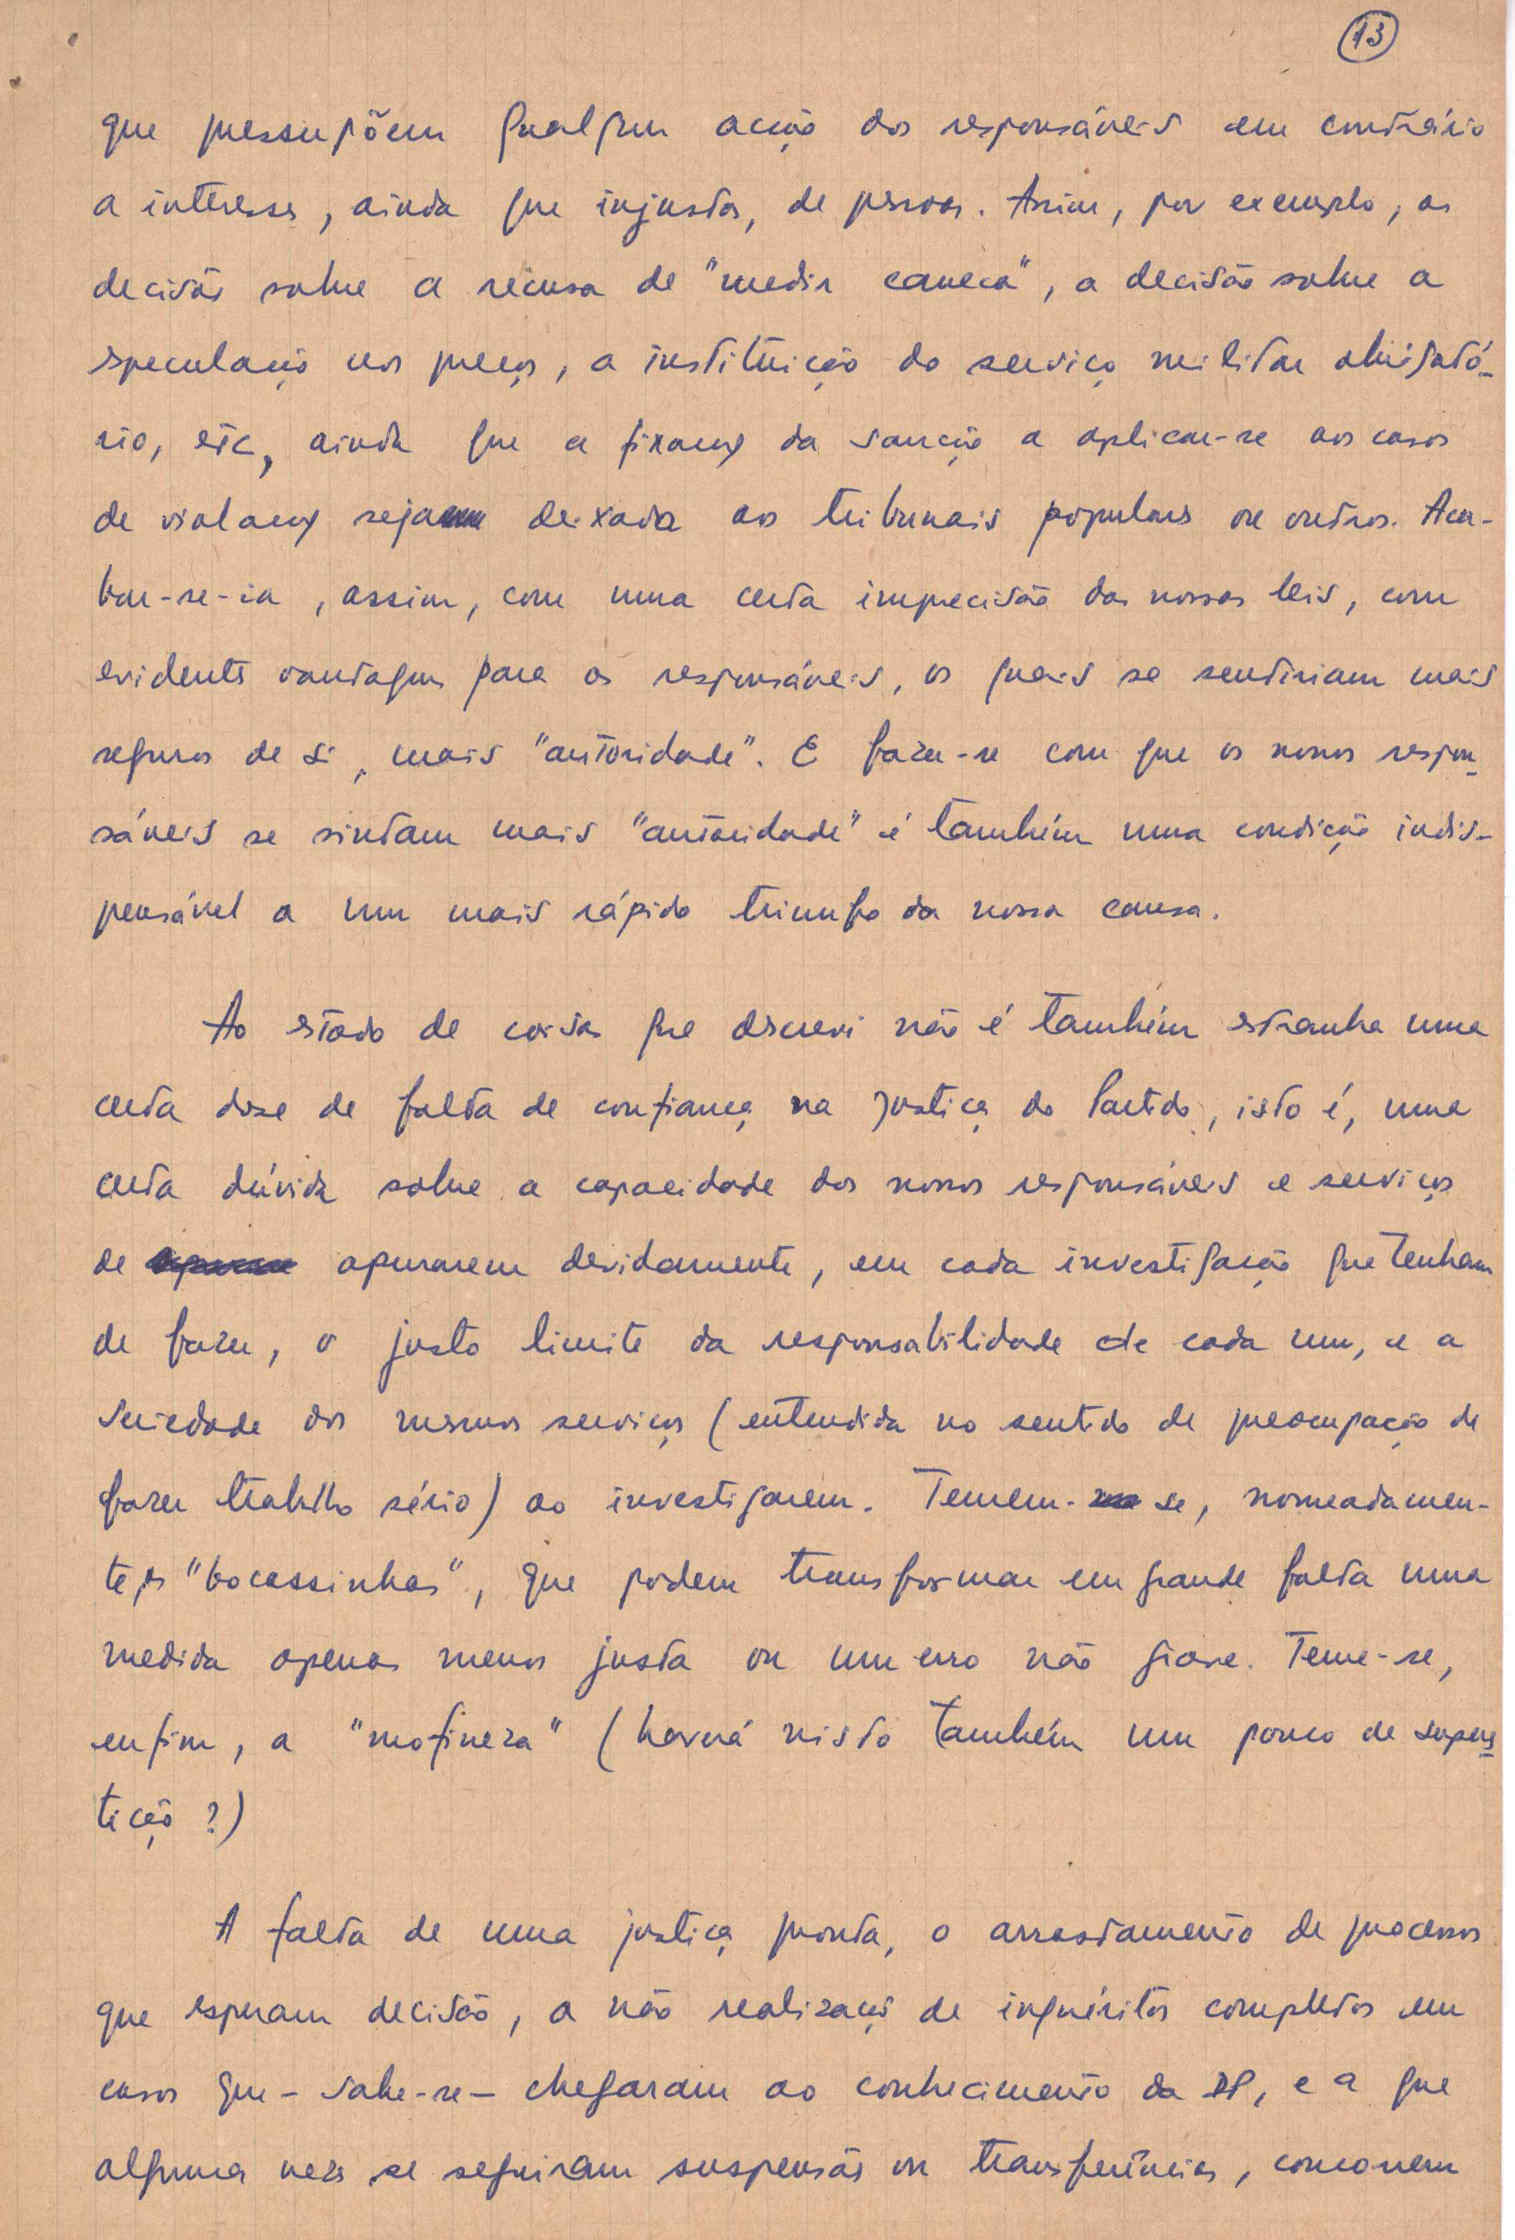 13
que pressupõem qualquer acção dos responsáveis em contrário
a interesses, ainda que injustos, de pessoas. Assim, por exemplo, as
decisões sobre a recusa de "medir caneca", a decisão sobre a
especulação nos preços, a instituição do serviço militar obrigató-
rio, etc, ainda que a fixação da sanção a aplicar-se aos casos
de violação seja deixada aos tribunais populares ou outros. Aca-
bar-se-ia, assim, com uma certa imprecisão das nossas leis, com
evidentes vantagens para os responsáveis, os quais se sentiriam mais
seguros de si, mais "autoridade". E fazer-se com que os nossos respon-
sáveis se sintam mais "autoridade" é também uma condição indis-
pensável a um mais rápido triunfo da nossa causa.
Ao estado de coisas que descrevi não é também estranha uma
certa dose de falta de confiança na justiça do Partido, isto é, uma
certa dúvida sobre a capacidade dos nossos responsáveis e serviços
de apurarem devidamente, em cada investigação que tenham
de fazer, o justo limite da responsabilidade de cada um, e a
seriedade dos mesmos serviços (entendida no sentido de preocupação de
fazer trabalho sério) ao investigarem. Temem-se, nomeadamen-
te, as "bocassinhas", que podem transformar em grande falta uma
medida apenas menos justa ou um erro não grave. Teme-se,
enfim, a "mofineza" (haverá nisto também um pouco de supers-
tição?)
A falta de uma justiça pronta, o arrastamento de processos
que esperam decisão, a não realização de inquéritos completos em
casos que - sabe-se - chegaram ao conhecimento da DP, e a que
algumas vezes se seguiram suspensões ou transferências, concorrem